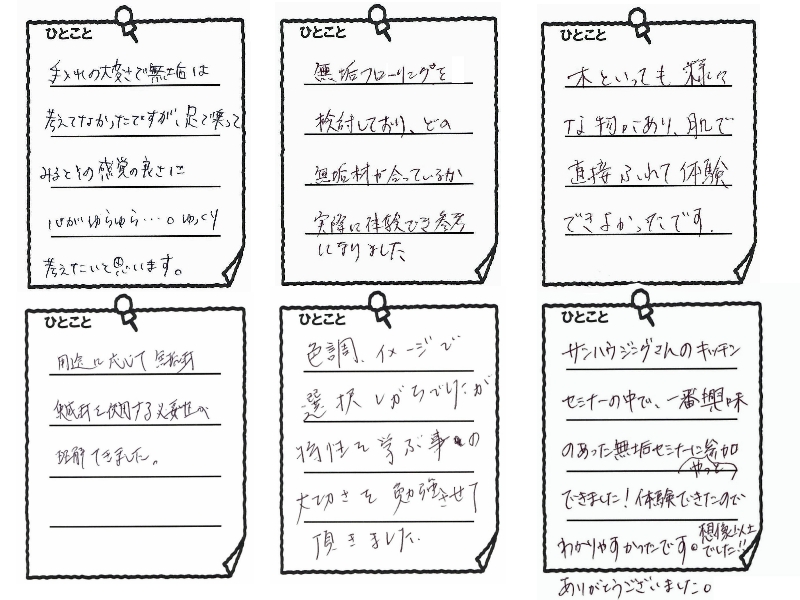 ひとこと
手入れの大変さで無垢は
考えてなかったですが、足で乗って
みるとその感覚の良さに
心がゆらゆら…。ゆっくり
考えたいと思います。
ひとこと
無垢フローリングを
検討しており、どの
無垢材が合っているか
実際に体験でき参考
になりました
ひとこと
木といっても 様々
な物があり、肌で
直接ふれて体験
できよかったです.
ひとこと
用途に応じて 無垢材
を使用する必要性が
理解できました。
ひとこと
色調、イメージで
選択しがちでしたが
特性を学ぶ事の
大切さを勉強させて
頂きました.
ひとこと
サンハウジングさんのキッチン
セミナーの中で、一番興味
のあった無垢セミナーに参加
やっと
できました！体験できたので
わかりやすかったです。想像以上
でした!!
ありがとうございました。